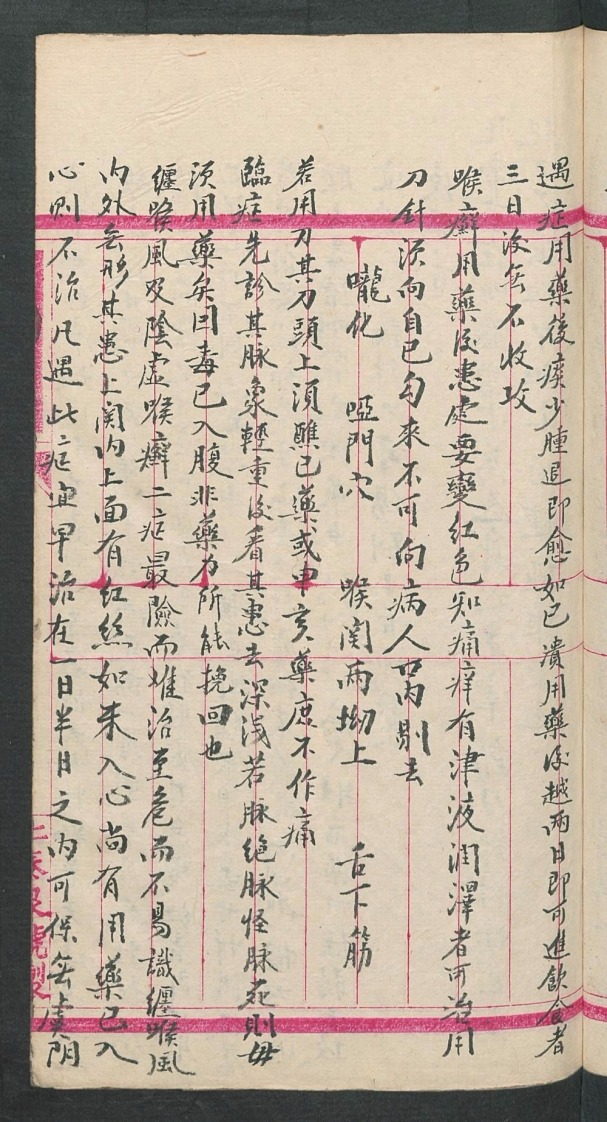 遇症用藥後痰少腫退即愈如已潰用藥後越兩日即可進飲食者
三日後無不收攻
喉癬用藥後患處要變紅色知痛痒有津液潤澤者可治用
刀針須向自己勾來不可向病人口内剔去
嚨化 啞門穴 喉関兩坳上 舌下筋
若用刀其刀頭上須蘸已藥或申亥藥庶不作痛
臨症先診其脉象輕重後看其患去深浅若脉絶脉怪脉死則毋
須用藥矣因毒已入腹非藥力所能挽回也
纏喉風及陰虚喉癬二症最險而难治至危而不易識纏喉風
内外無形其患上関内上面有紅絲如未入心尚有用藥已入
心則不治凡遇此症宜早治在一日半日之内可保無虞阴